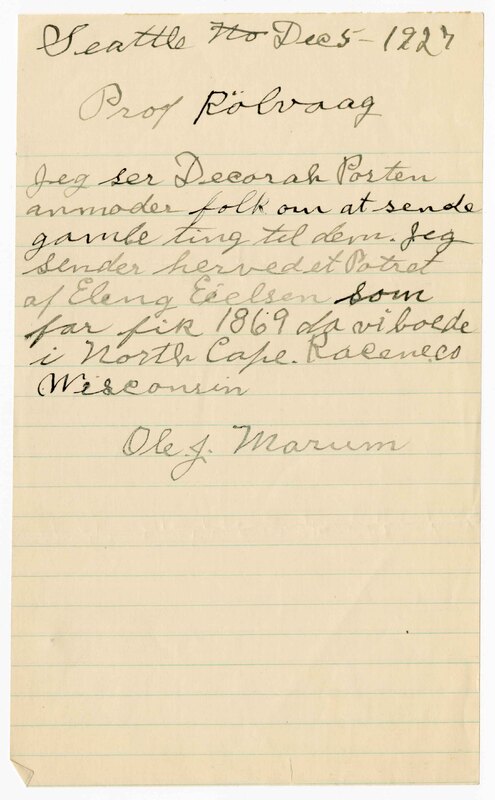 Seattle No Dec 5 - 1927
Prof Rölvaag
Jeg ser Decorah Posten
anmoder folk om at sende
gamle ting til dem. Jeg
sender herved et Potret
af Eleng Eielsen som
far fik 1869 da vi boede
i North Cape. Racene co
Wisconsin
Ole J. Marum